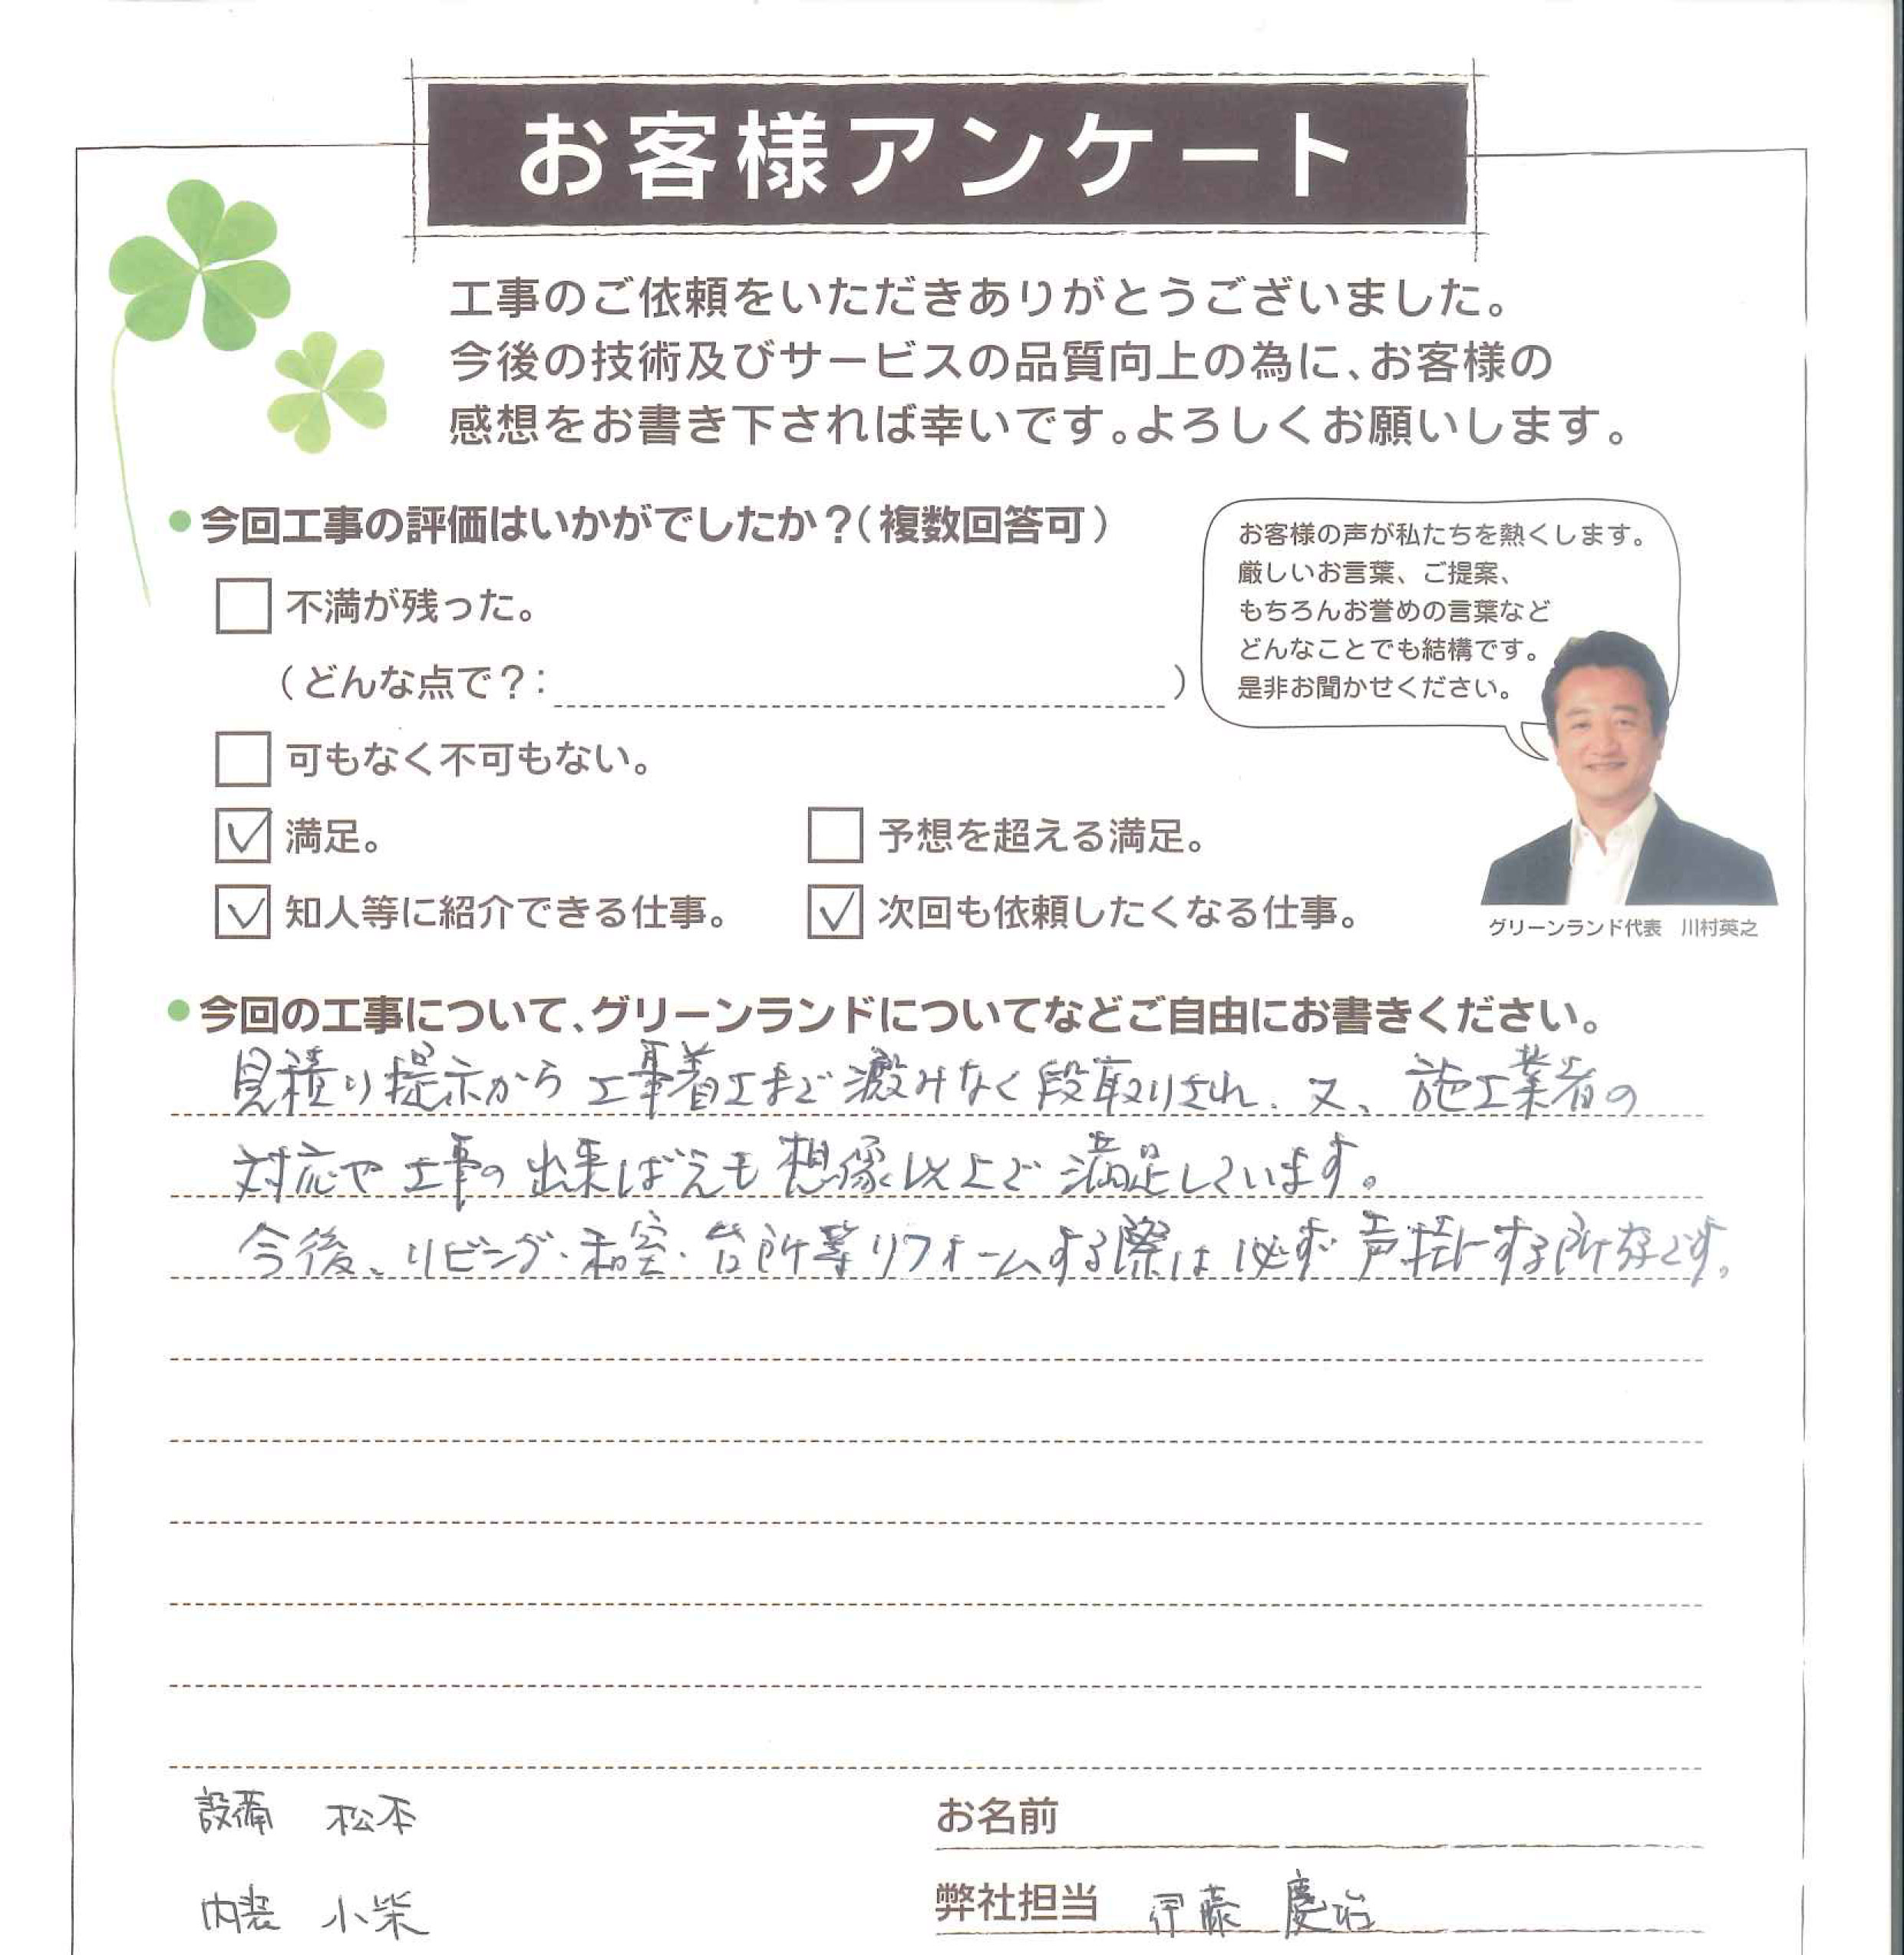 お客様アンケート
工事のご依頼をいただきありがとうございました。
今後の技術及びサービスの品質向上の為に、お客様の
感想をお書き下されば幸いです。よろしくお願いします。
●今回工事の評価はいかがでしたか？（複数回答可）
不満が残った。
（どんな点で？：　）
可もなく不可もない。
満足。
予想を超える満足。
知人等に紹介できる仕事。
次回も依頼したくなる仕事。
お客様の声が私たちを熱くします。
厳しいお言葉、ご提案、
もちろんお誉めの言葉など
どんなことでも結構です。
是非お聞かせください。
グリーンランド代表　川村英之
●今回の工事について、グリーンランドについてなどご自由にお書きください。
見積り提示から工事着工まで澱みなく段取りされ、又、施工業者の
対応や工事の出来ばえも想像以上で満足しています。
今後、リビング・和室・台所等リフォームする際は必ず声掛けする所存です。
設備　松本
内装　小柴
お名前
弊社担当　伊藤　慶治